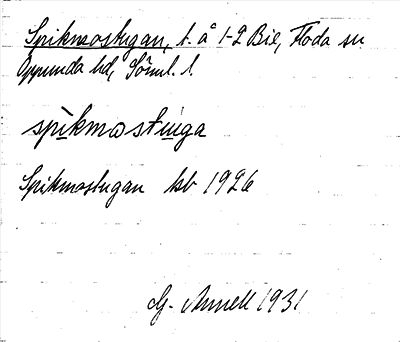 Spikmostugan, t. å 1-2 Bie, Floda sn
Oppunda hd, Söml. l.
spikmostuga
Spikmostugan lsb 1926
G. Annell 1931